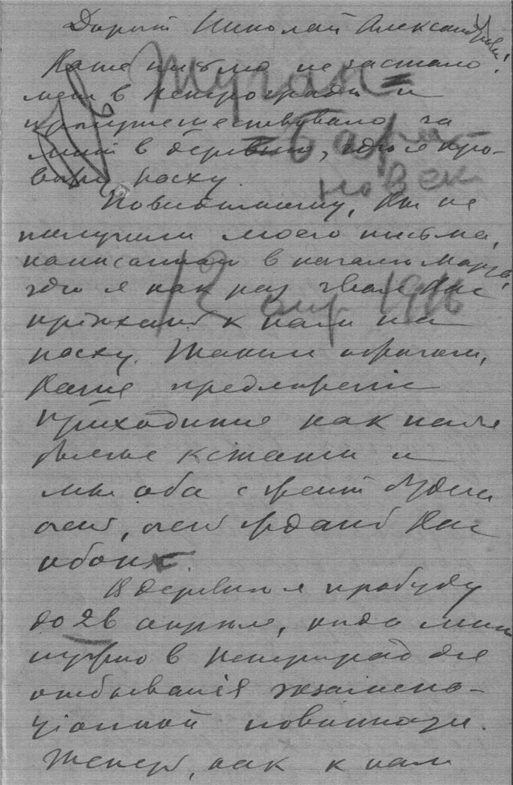 Дорогой Николай Александрович!
Ваше письмо не застало
меня в Петрограде и
пропутешествовало за
мной в деревню, где я про-
вожу пасху.
Туган-
Барановск
12 апр 1916
Повидимому, Вы не
получили моего письма,
написанного в начале марта,
где я как раз звал Вас
приехать к нам на
пасху. Таким образом,
Ваше предложение
приходится как нельзя
более кстати и
мы оба с женой будем
очень, очень ждать Вас
обоих.
В деревне я пробуду
до 26 апреля, когда мне
нужно в Петроград для
отбыванія экзамена-
ціонной повинности.
Теперь, как к нам